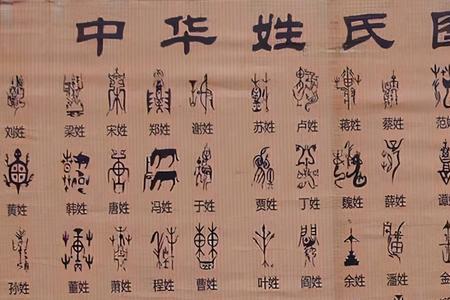 中华姓氏图
刘姓 梁姓 宋姓 郑姓 谢姓 苏姓 卢姓 蒋姓 蔡姓 范姓
黄姓 韩姓 唐姓 冯姓 于姓 贾姓 丁姓 魏姓 薛姓 谭姓
孙姓 董姓 萧姓 程姓 曹姓 叶姓 阎姓 余姓 潘姓 金姓